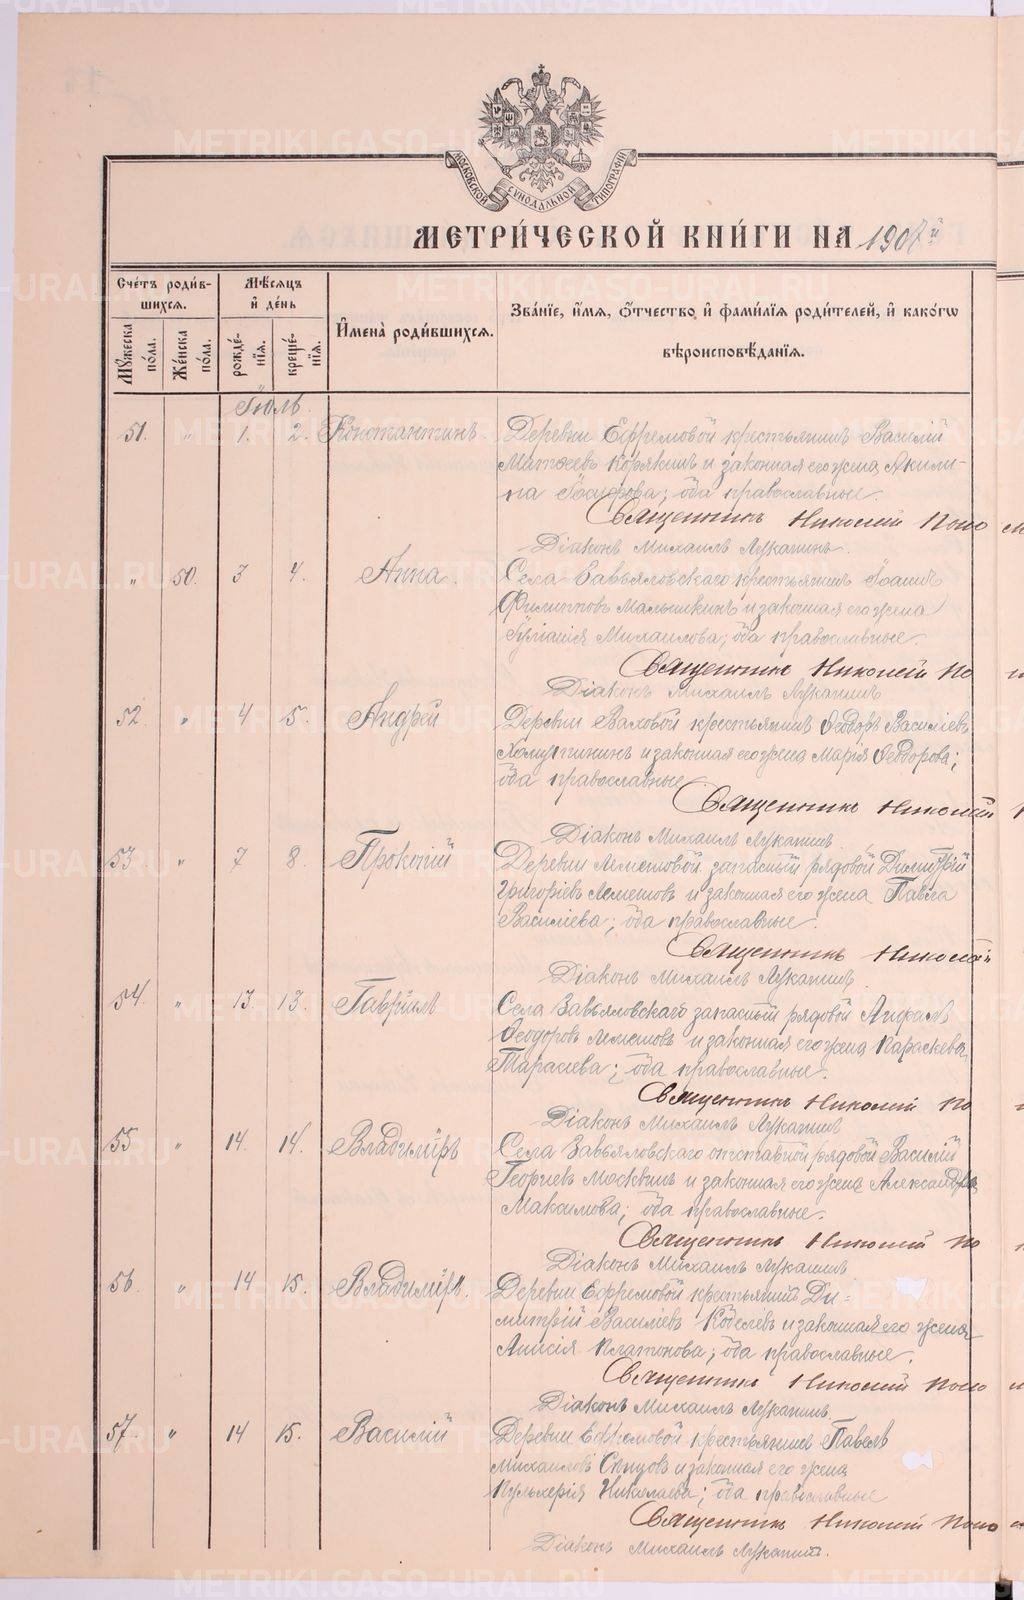 МОСКОВСКОЙ СѴНОДАЛЬНОЙ ТИПОГРАФІИ
МЕТРИ́ЧЕСКОЙ КНИ́ГИ НА 1907й
Сче́тъ роди́в-
шихся.
Мѣ́сяцъ
и҆ де́нь
И҆мена̀ роди́вшихся.
Зва́нїе, и҆́мя, ѻ҆́тчество, и҆ фами́лїя роди́телей, и҆ како́гѡ
вѣроисповѣ́данїя.
Мꙋ́жеска по́ла.
Же́нска по́ла.
рожде́-нїя.
креще́-нїя.
Іюль
51. " 1. 2. Константинъ. Деревни Ефремовой крестьянинъ Василій
Матѳеевъ Корякинъ и законная его жена Акили-
на ; оба православные.
Священникъ Николай Поно
Діаконъ Михаилъ Лукашинъ.
" 50. 3 4. Анна. Села Завьяловскаго крестьянинъ Іоаннъ
Филипповъ Малышкинъ и законная его жена
Михаилова; оба православные.
Священникъ Николай По
Діаконъ Михаилъ Лукашинъ
52. " 4 5. Андрей Деревни Ваховой крестьянинъ Ѳеодоръ Василіевъ
Хомутининъ и законная его жена Марія Ѳеодорова;
оба православные
Священникъ Николай
Діаконъ Михаилъ Лукашинъ.
53 " 7 8. Прокопій Деревни Лемешовой запасный рядовой Димитрій
Григоріевъ Лемешовъ и законная его жена Павла
Василіева; оба православные.
Священникъ Николай
Діаконъ Михаилъ Лукашинъ.
54. " 13 13. Гавріилъ Села Завьяловскаго запасный рядовой
Ѳеодоровъ Лемешовъ и законная его жена Параскева
Тарасіева; оба православные.
Священникъ Николай По
Діаконъ Михаилъ Лукашинъ
55 " 14. 14. Владиміръ Села Завьяловскаго отставной рядовой Василій
Георгіевъ Москвинъ и законная его жена Александра
Максимова; оба православные.
Священникъ Николай По
Діаконъ Михаилъ Лукашинъ
56. " 14 15. Владиміръ. Деревни Ефремовой крестьянинъ Ди-
митрій Василіевъ Кобелевъ и законная его жена
Анисія Платонова; оба православные.
Священникъ Николай Поно
Діаконъ Михаилъ Лукашинъ.
57. " 14 15. Василій Деревни Ефремовой крестьянинъ Павелъ
Михаиловъ и законная его жена
Пульхерія Николаева; оба православные
Священникъ Николай Поно
Діаконъ Михаилъ Лукашинъ.
METRIKI.GASO-URAL.RU